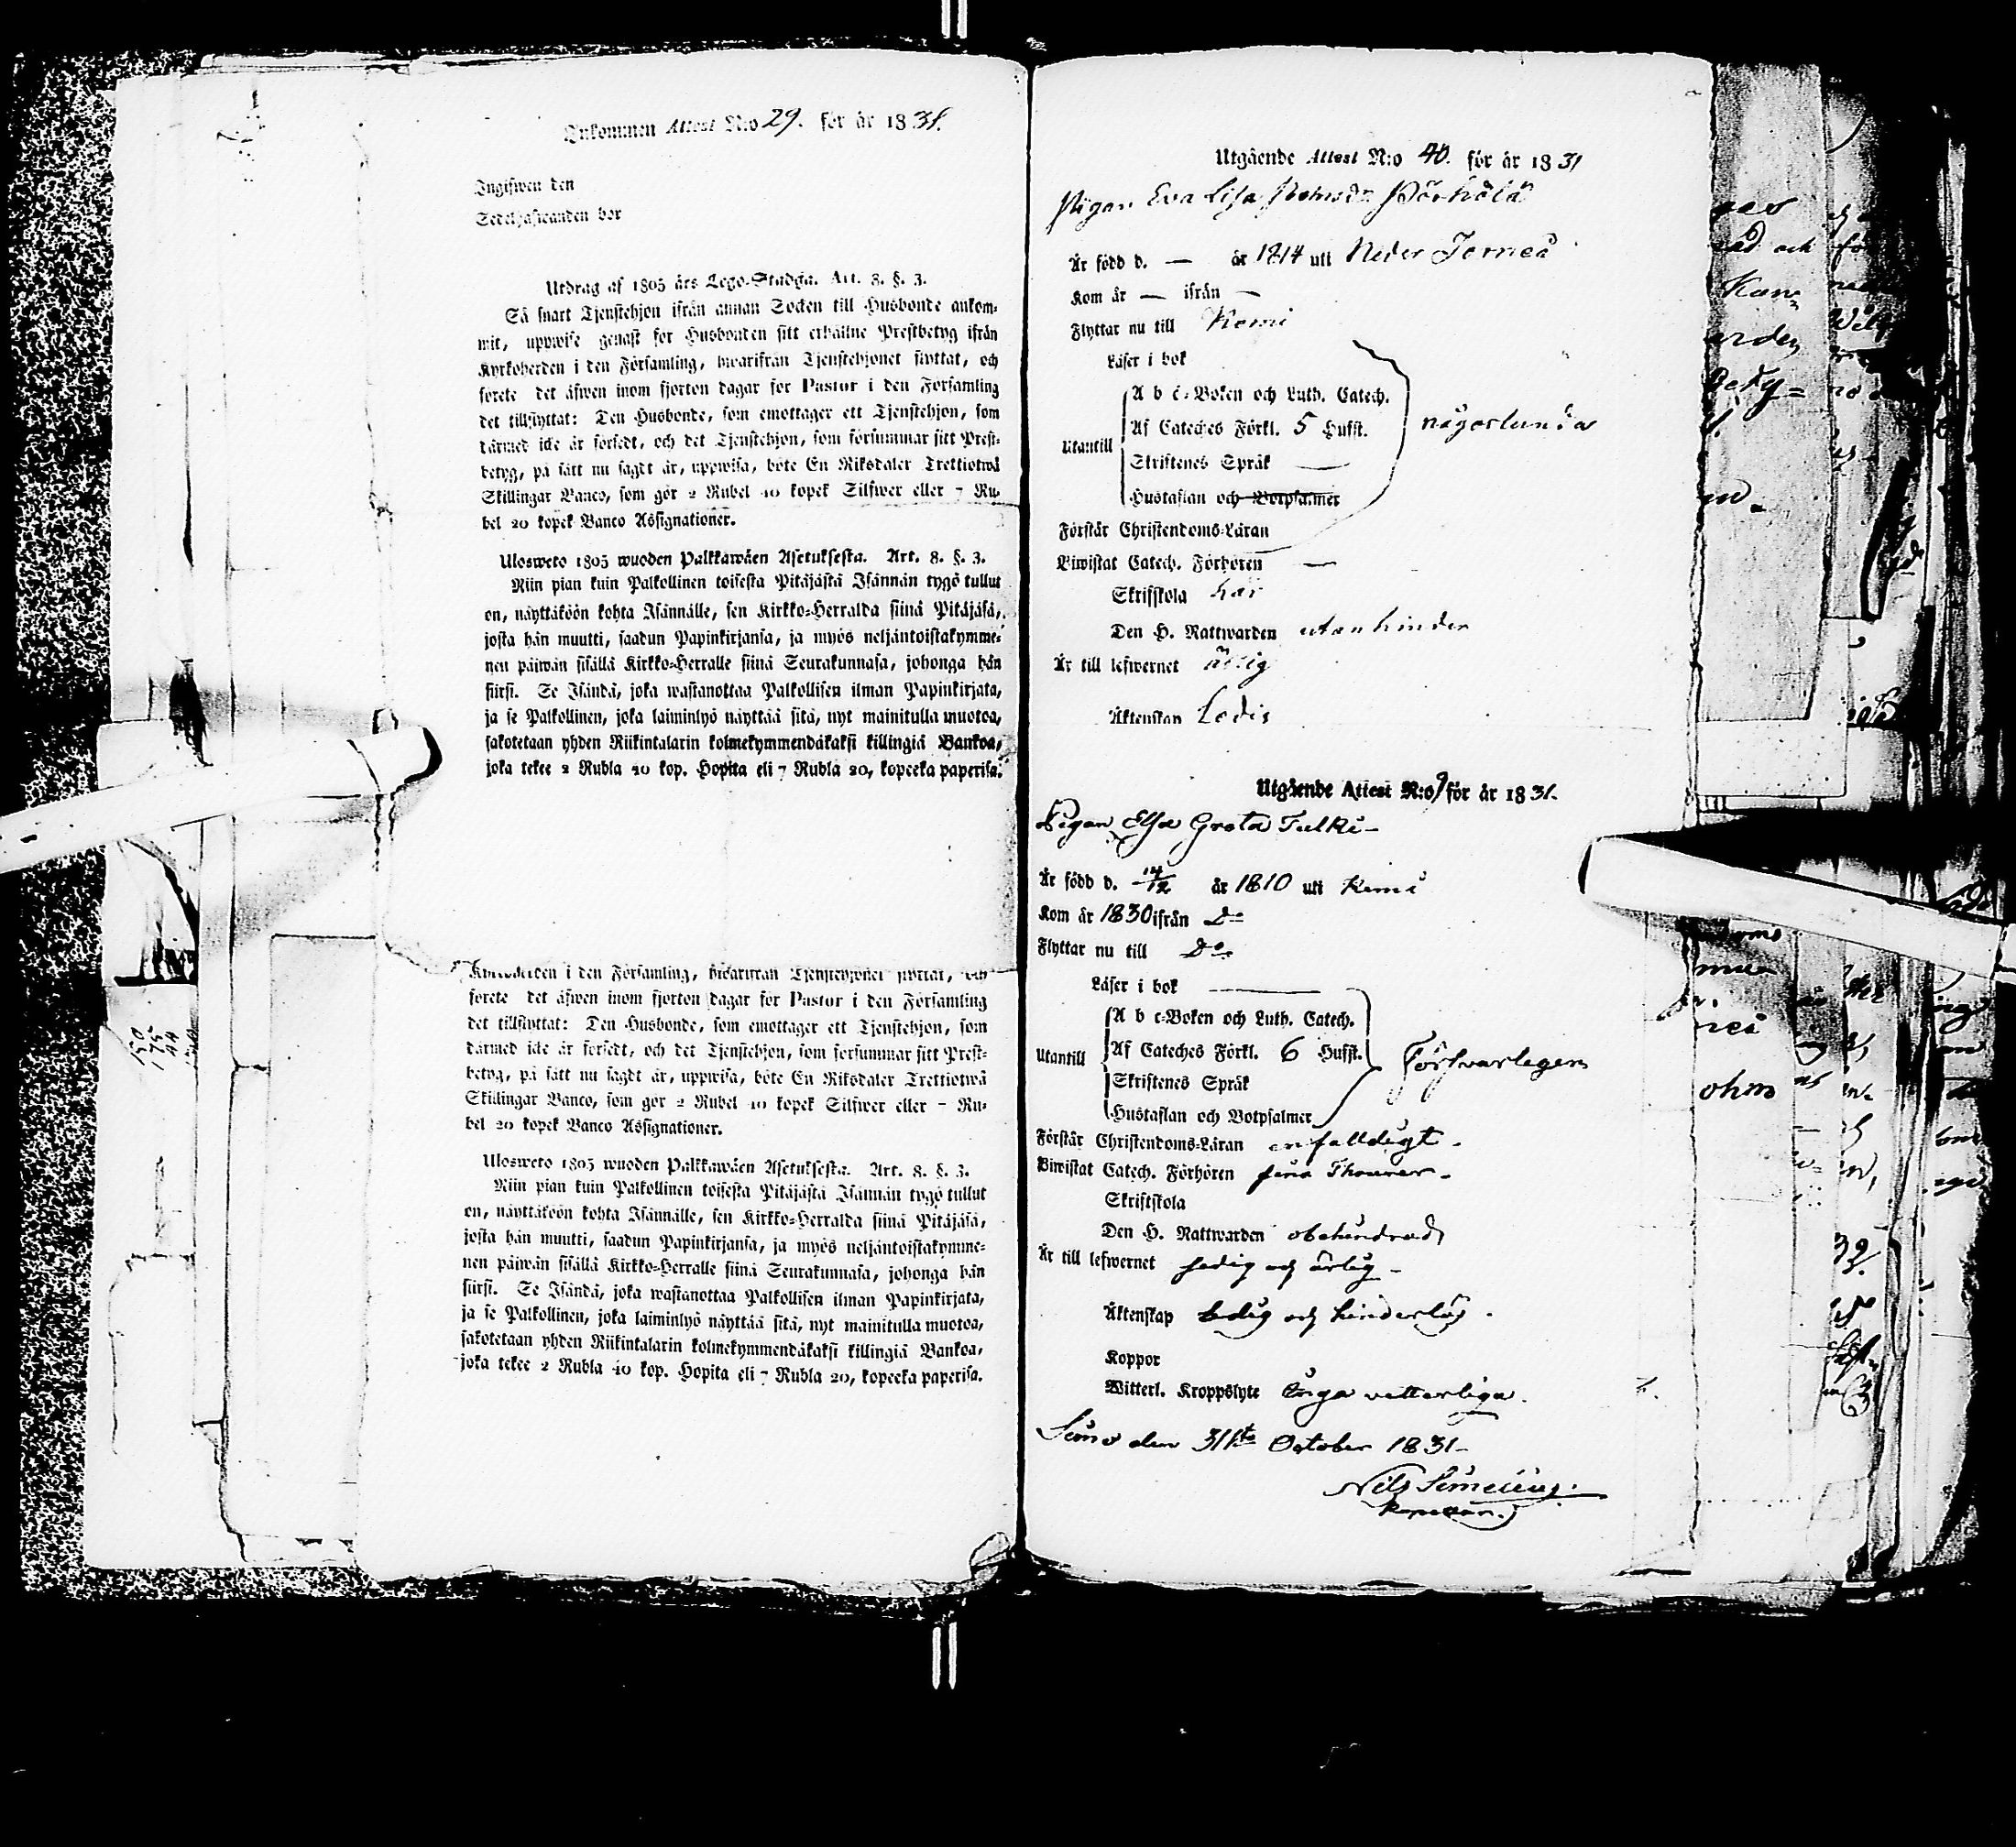 Inkommen Attest N:o 29. för år 1831.
Ingifwen den
Sedelhafwanden bor
Utdrag af 1805 års Lego-Stadga. Art. 8. §. 3.
Så snart Tjenstehjon ifrån annan Socken till Husbonde ankom-
mit, uppwise genast för Husbonden sitt erhållne Prestbetyg ifrån
Kyrkoherden i den Församling, hwarifrån Tjenstehjonet flyttat, och
förete det äfwen inom fjorton dagar för Pastor i den Församling
det tillflyttat: Den Husbonde, som emottager ett Tjenstehjon, som
därmed icke är försedt, och det Tjenstehjon, som försummar sitt Prest-
betyg, på sätt nu sagdt är, uppwisa, böte En Riksdaler Trettiotwå
Skillingar Banco, som gör 2 Rubel 40 kopek Silfwer eller 7 Ru-
bel 20 kopek Banco Assignationer.
Ulosweto 1805 wuoden Palkkawäen Asetuksesta. Art. 8. §. 3.
Niin pian kuin Palkollinen toisesta Pitäjästä Isännän tygö tullut
on, näyttäköön kohta Isännälle, sen Kirkko-Herralda siinä Pitäjäsä,
josta hän muutti, saadun Papinkirjansa, ja myös neljäntoistakymme-
nen päiwän sisällä Kirkko-Herralle siinä Seurakunnasa, johonga hän
siirsi. Se Isändä, joka wastanottaa Palkollisen ilman Papinkirjata,
ja se Palkollinen, joka laiminlyö näyttää sitä, nyt mainitulla muotoa,
sakotetaan yhden Riikintalarin kolmekymmendäkaksi killingiä Bankoa,
joka tekee 2 Rubla 40 kop. Hopita eli 7 Rubla 20, kopeeka paperisa.
Kyrkoherden i den Församling, hwarifrån Tjenstehjonet flyttat, och
förete det äfwen inom fjorton dagar för Pastor i den Församling
det tillflyttat: Den Husbonde, som emottager ett Tjenstehjon, som
därmed icke är försedt, och det Tjenstehjon, som försummar sitt Prest-
betyg, på sätt nu sagdt är, uppwisa, böte En Riksdaler Trettiotwå
Skillingar Banco, som gör 2 Rubel 40 kopek Silfwer eller 7 Ru-
bel 20 kopek Banco Assignationer.
Ulosweto 1805 wuoden Palkkawäen Asetuksesta. Art. 8. §. 3.
Niin pian kuin Palkollinen toisesta Pitäjästä Isännän tygö tullut
on, näyttäköön kohta Isännälle, sen Kirkko-Herralda siinä Pitäjäsä,
josta hän muutti, saadun Papinkirjansa, ja myös neljäntoistakymme-
nen päiwän sisällä Kirkko-Herralle siinä Seurakunnasa, johonga hän
siirsi. Se Isändä, joka wastanottaa Palkollisen ilman Papinkirjata,
ja se Palkollinen, joka laiminlyö näyttää sitä, nyt mainitulla muotoa,
sakotetaan yhden Riikintalarin kolmekymmendäkaksi killingiä Bankoa,
joka tekee 2 Rubla 40 kop. Hopita eli 7 Rubla 20, kopeeka paperisa.
Utgående Attest N:o 40. för år 1831
Pigan Eva Lisa
Är född d. — år 1814 uti Neder Torneå
Kom år — ifrån —
Flyttar nu till Kemi
Läser i bok
A b c-Boken och Luth. Catech.
utantill Af Cateches Förkl. 5 Hufst. någorlunda
Skriftenes Språk —
Hustaflan och Botpsalmer
Förstår Christendoms-Läran
Biwistat Catech. Förhören —
Skriftskola här
Den H. Nattwarden utan hinder
Är till lefwernet ärlig
Äktenskap Ledig
Utgående Attest N:o 9 för år 1831.
Pigan Elsa Greta Tulki -
Är född d. 14/12 år 1810 uti Kemi
Kom år 1830 ifrån Do
Flyttar nu till Do
Läser i bok
A b c-Boken och Luth. Catech.
utantill Af Cateches Förkl. 6 Hufst. Försvarligen
Skriftenes Språk
Hustaflan och Botpsalmer
Förstår Christendoms-Läran enfalldigt -
Biwistat Catech. Förhören sina
Skriftskola
Den H. Nattwarden obehindrad
Är till lefwernet sedig och ärlig -
Äktenskap Ledig och hinderlös -
Koppor
Witterl. Kroppslyte Inga vetterliga.
Simo den 31sta October 1831-
Nils Simelius.
Kapellan.